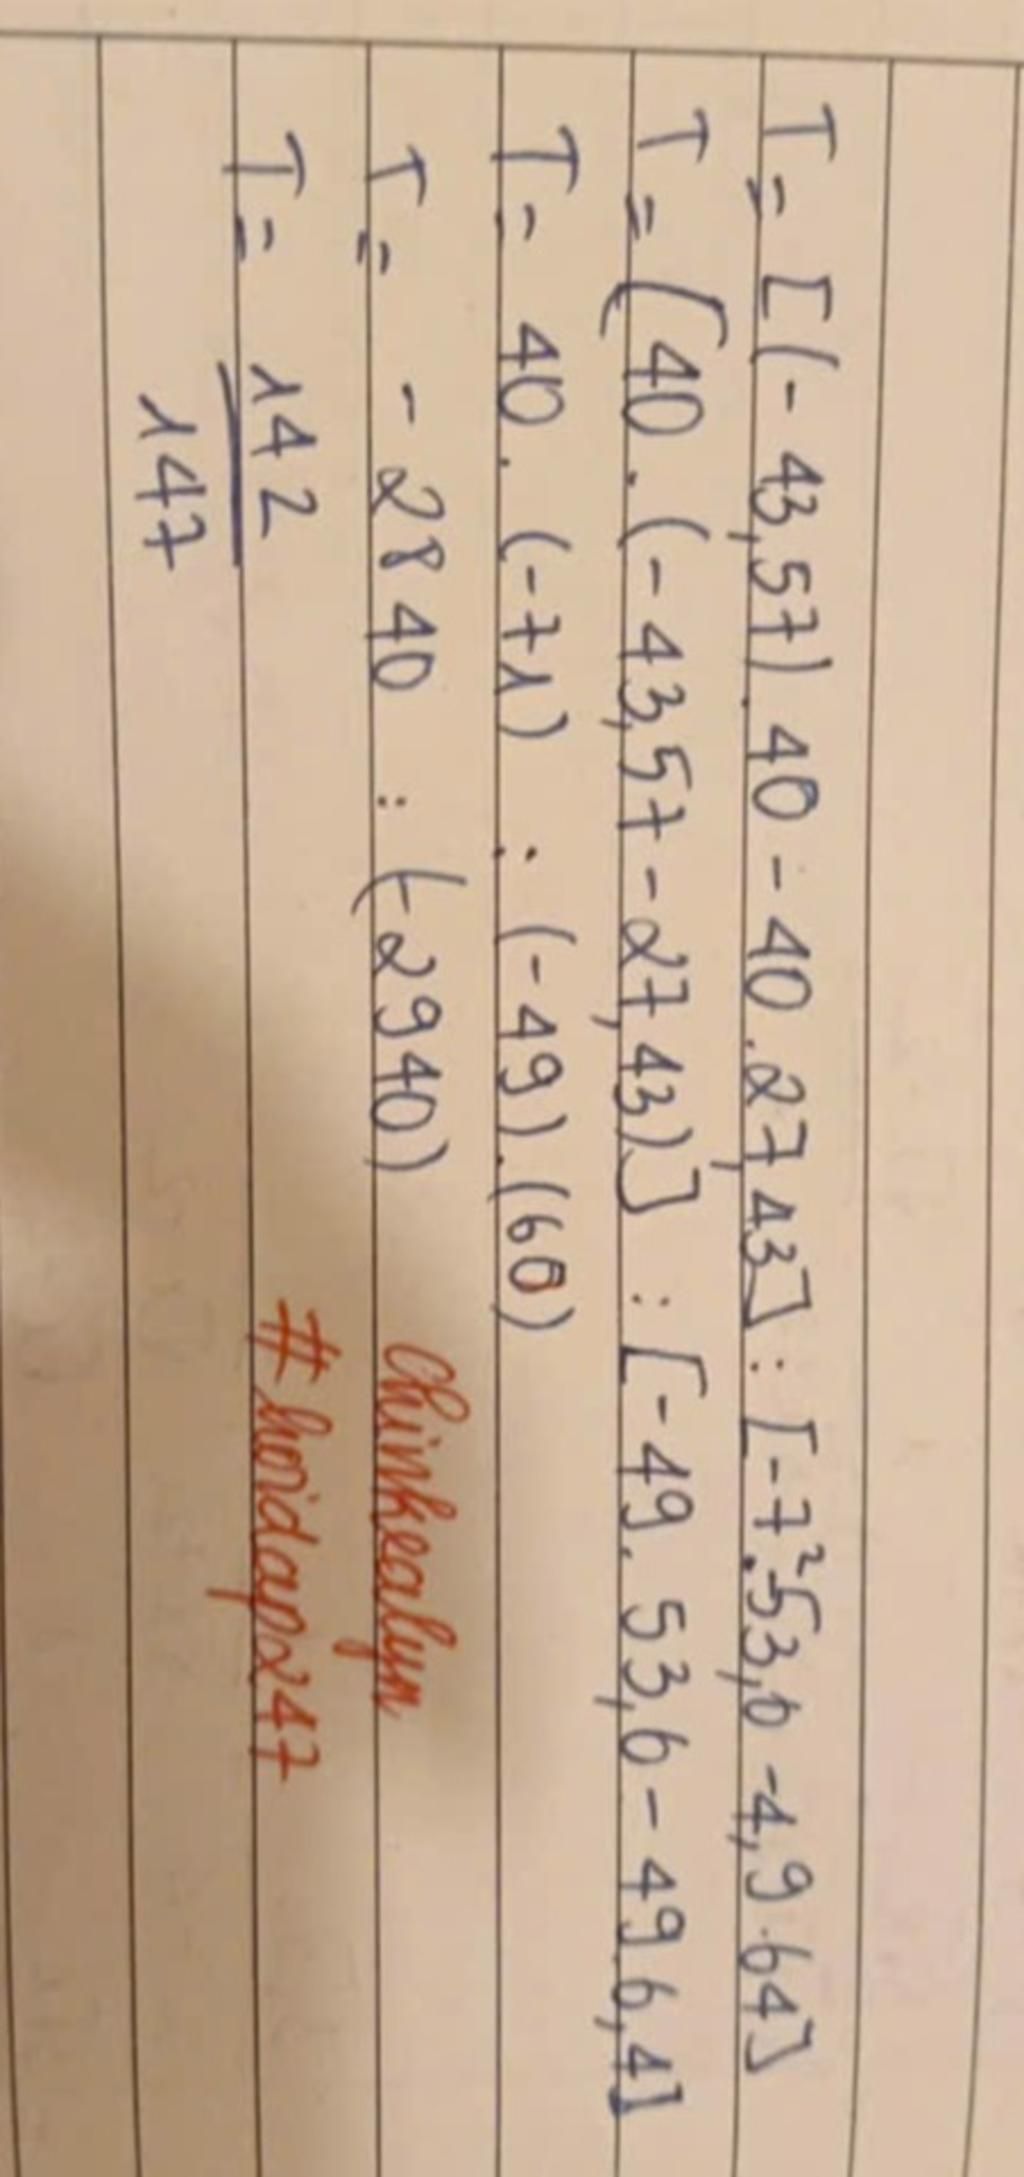 T = [(-43,57).40 - 40.27,43] : [-7².53,6 - 4,9.64]
T = [40.(-43,57 - 27,43)] : [-49.53,6 - 49.6,4]
T = 40.(-71) : (-49).(60)
T = -2840 : (-2940)
T = 142
147
Chinkealyn
#hoidap247